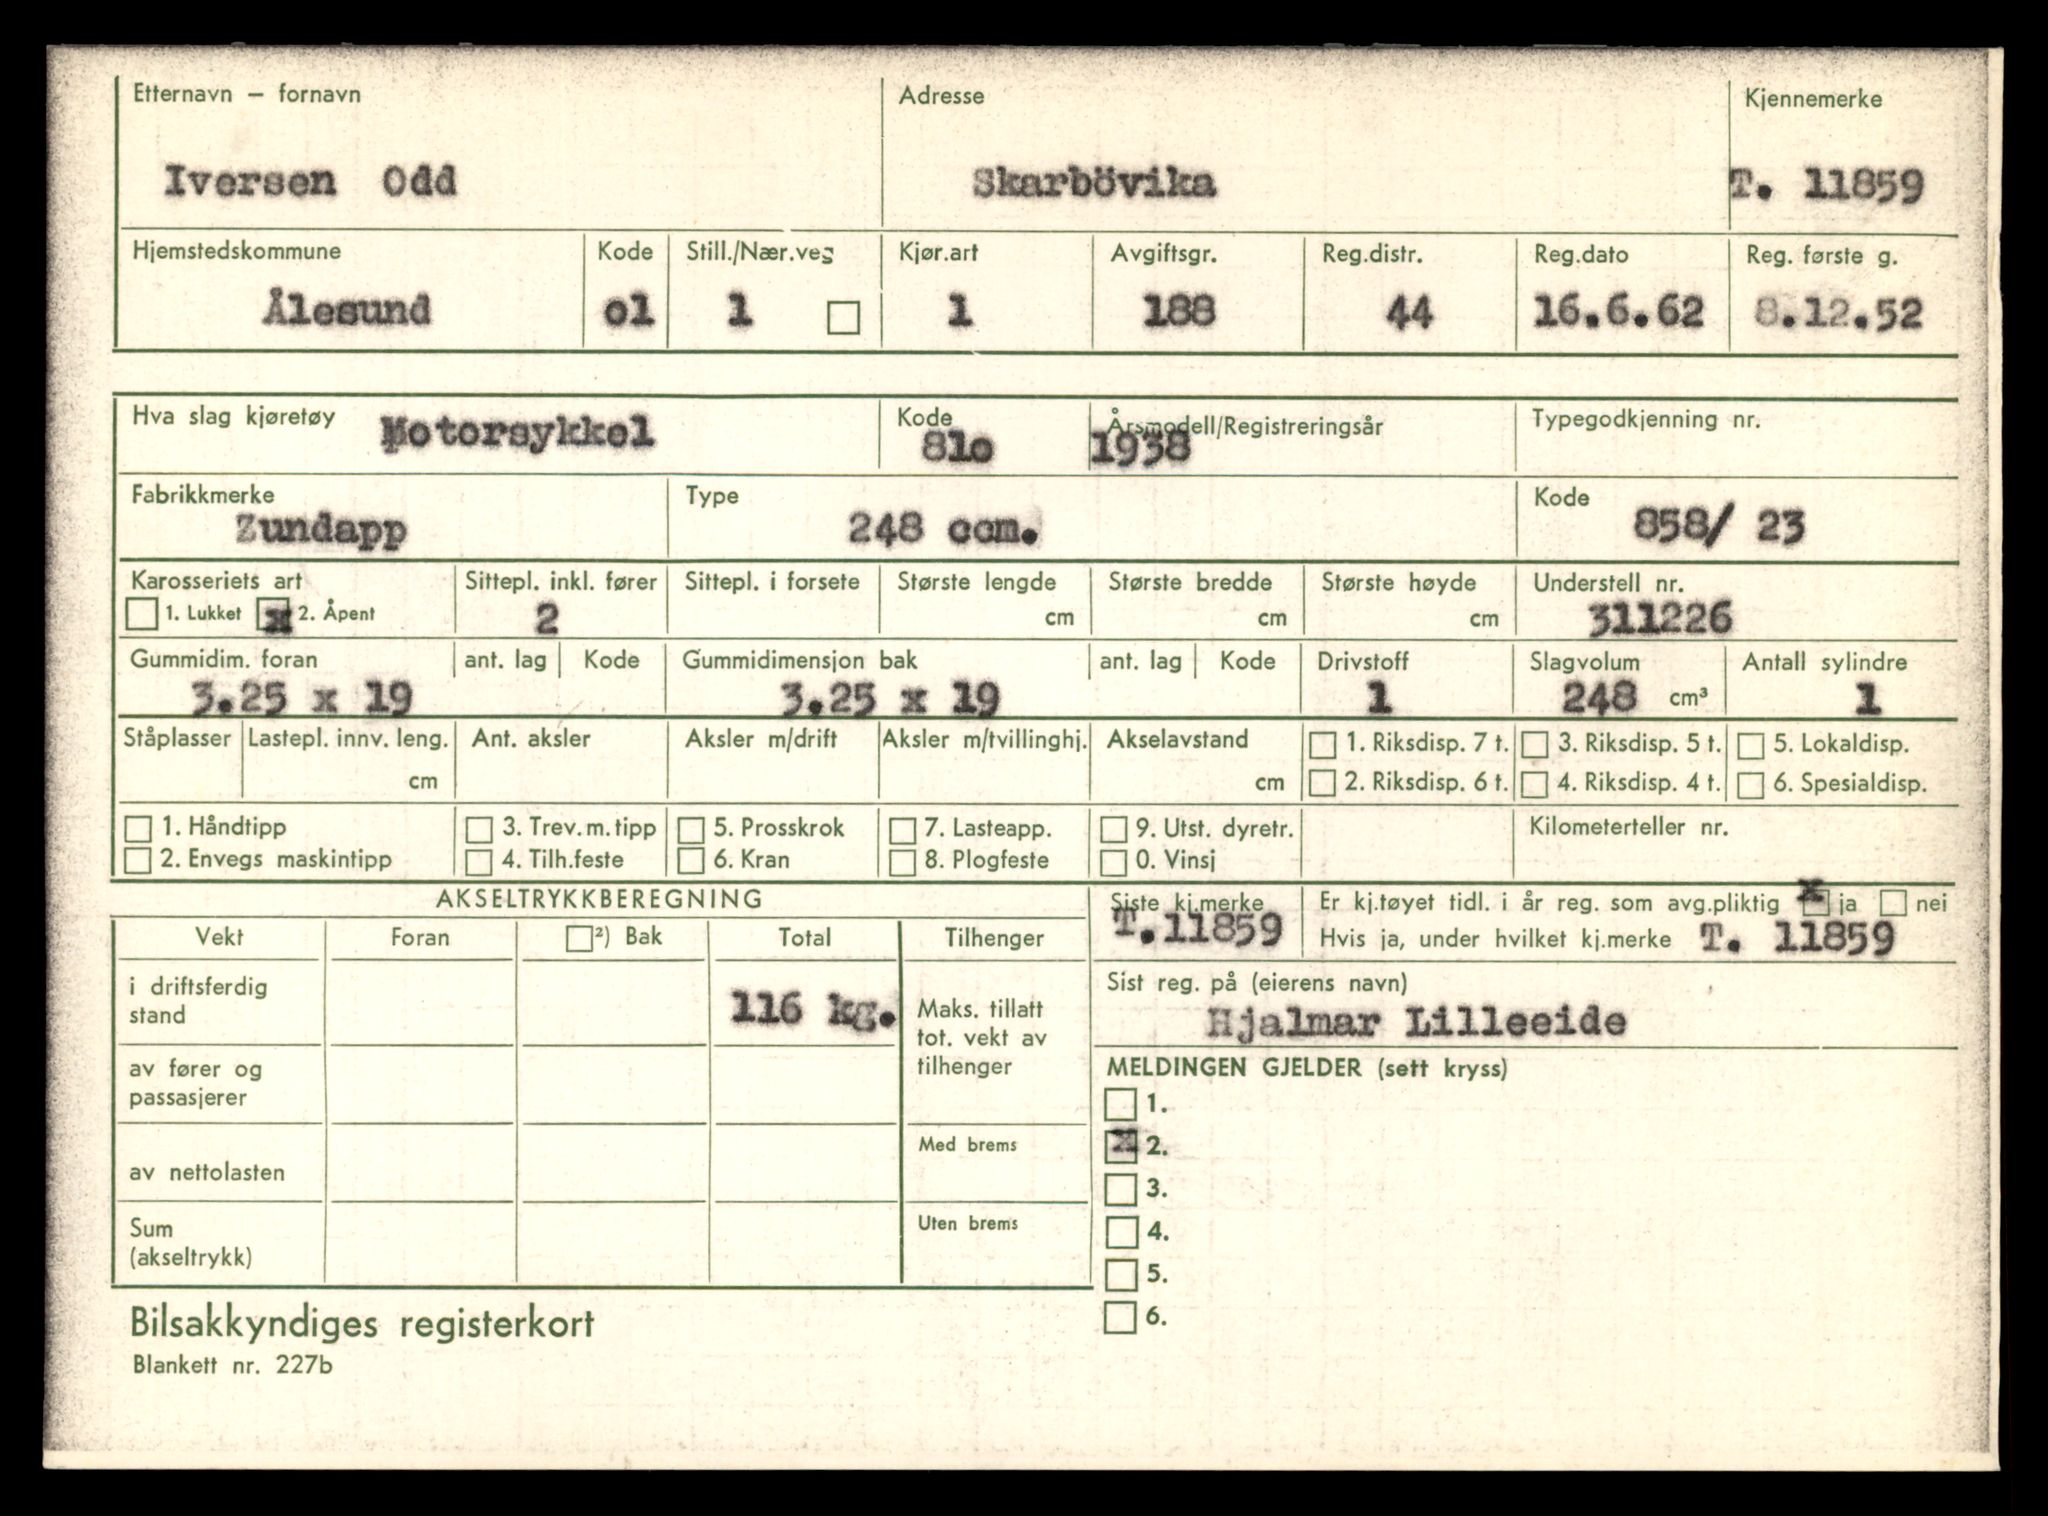 Etternavn – fornavn Adresse Kjennemerke
Iversen Odd Skarbövika T. 11859
Hjemstedskommune Kode Still./Nær.veg Kjør.art Avgiftsgr. Reg.distr. Reg.dato Reg. første g.
Ålesund o1 1 1 188 44 16.6.62 8.12.52
Hva slag kjøretøy Motorsykkel Kode 81o Årsmodell/Registreringsår 1938 Typegodkjenning nr.
Fabrikkmerke Type Kode
Zundapp 248 ccm. 858/ 23
Karosseriets art Sittepl. inkl. fører Sittepl. i forsete Største lengde Største bredde Største høyde Understell nr.
1. Lukket x 2. Åpent 2 cm cm cm 311226
Gummidim. foran ant. lag Kode Gummidimensjon bak ant. lag Kode Drivstoff Slagvolum Antall sylindre
3.25 x 19 3.25 x 19 1 248 cm³ 1
Ståplasser Lastepl. innv. leng. Ant. aksler Aksler m/drift Aksler m/tvillinghj. Akselavstand 1. Riksdisp. 7 t. 3. Riksdisp. 5 t. 5. Lokaldisp.
cm cm 2. Riksdisp. 6 t. 4. Riksdisp. 4 t. 6. Spesialdisp.
1. Håndtipp 3. Trev.m.tipp 5. Prosskrok 7. Lasteapp. 9. Utst. dyretr. Kilometerteller nr.
2. Envegs maskintipp 4. Tilh.feste 6. Kran 8. Plogfeste 0. Vinsj
AKSELTRYKKBEREGNING Siste kj.merke Er kj.tøyet tidl. i år reg. som avg.pliktig x ja nei
T.11859 Hvis ja, under hvilket kj.merke T. 11859
Vekt Foran ²) Bak Total Tilhenger
Sist reg. på (eierens navn)
Hjalmar Lilleeide
i driftsferdig
stand 116 kg.
Maks. tillatt
tot. vekt av
tilhenger
av fører og
passasjerer
MELDINGEN GJELDER (sett kryss)
1.
Med brems x 2.
av nettolasten 3.
Sum Uten brems 4.
(akseltrykk) 5.
6.
Bilsakkyndiges registerkort
Blankett nr. 227b